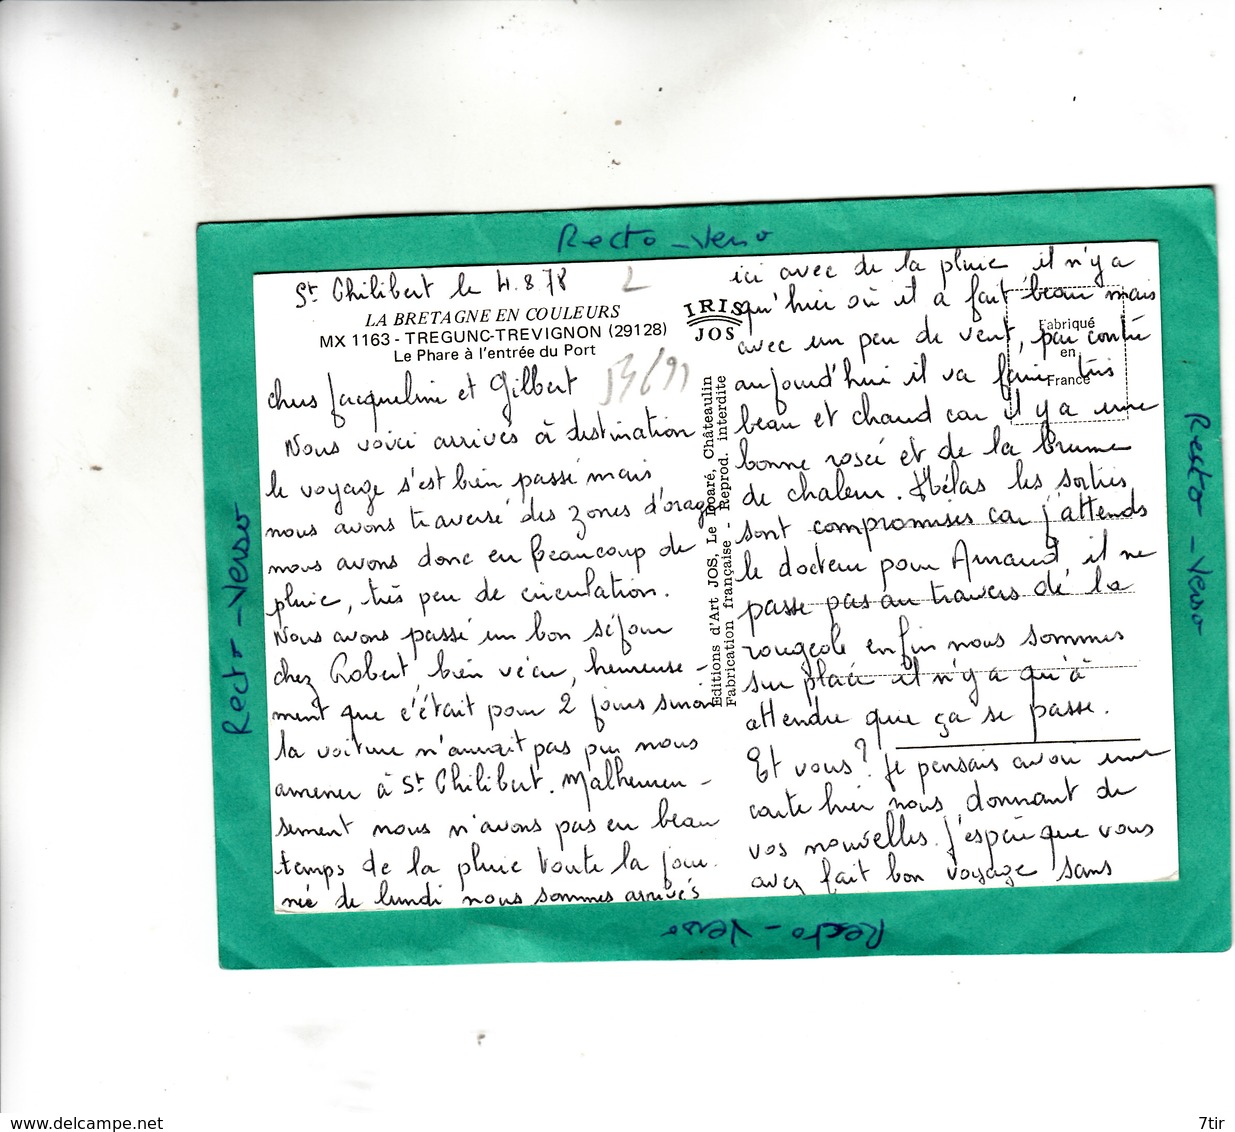 Recto - Verso
St Philibert le 4.8.78
L
LA BRETAGNE EN COULEURS
MX 1163 - TREGUNC-TREVIGNON (29128)
Le Phare à l'entrée du Port
IRIS
JOS
Fabriqué
en
France
Editions d'Art JOS, Le Doaré, Châteaulin
Fabrication française - Reprod. interdite
chers Jacqueline et Gilbert
Nous voici arrivés à destination
le voyage s'est bien passé mais
nous avons traversé des zones d'orage
nous avons donc eu beaucoup de
pluie, très peu de circulation.
Nous avons passé un bon séjour
chez Robert, bien vécu, heureuse-
ment que c'était pour 2 jours sinon
la voiture n'aurait pas pu nous
amener à St Philibert. Malheureu-
sement nous n'avons pas eu beau
temps de la pluie toute la jour.
née de lundi nous sommes arrivés
ici avec de la pluie il n'y a
qu'hier où il a fait beau mais
avec un peu de vent, par contre
aujourd'hui il va faire très
beau et chaud car il y a une
bonne rosée et de la brume
de chaleur. Hélas les sorties
sont compromises car j'attends
le docteur pour Arnaud, il ne
passe pas au travers de la
rougeole enfin nous sommes
sur place il n'y a qu'à
attendre que ça se passe.
Et vous? Je pensais avoir une
carte hier nous donnant de
vos nouvelles. J'espère que vous
avez fait bon voyage sans
Recto - Verso
Recto - Verso
Recto - Verso
www.delcampe.net
7tir